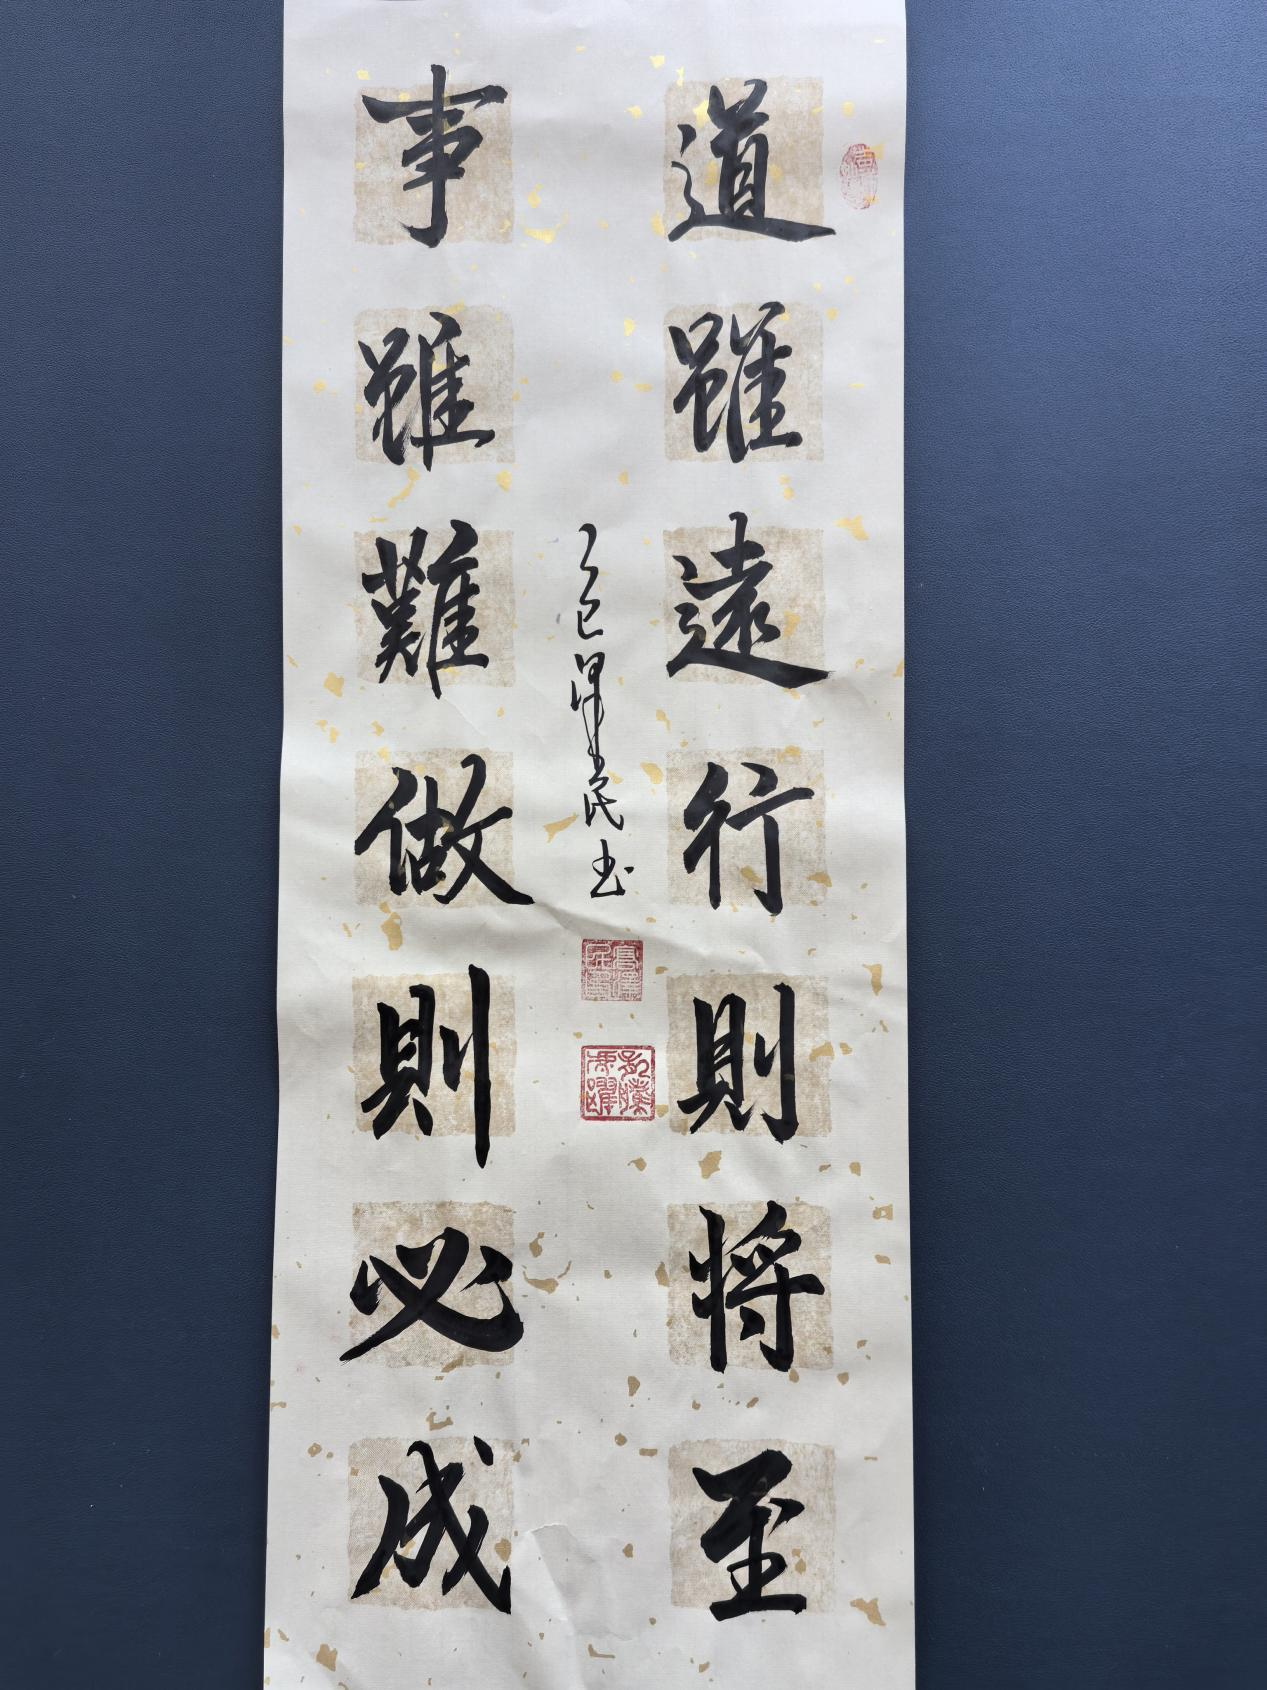 道雖遠行則將至
事雖難做則必成
乙巳澤民書